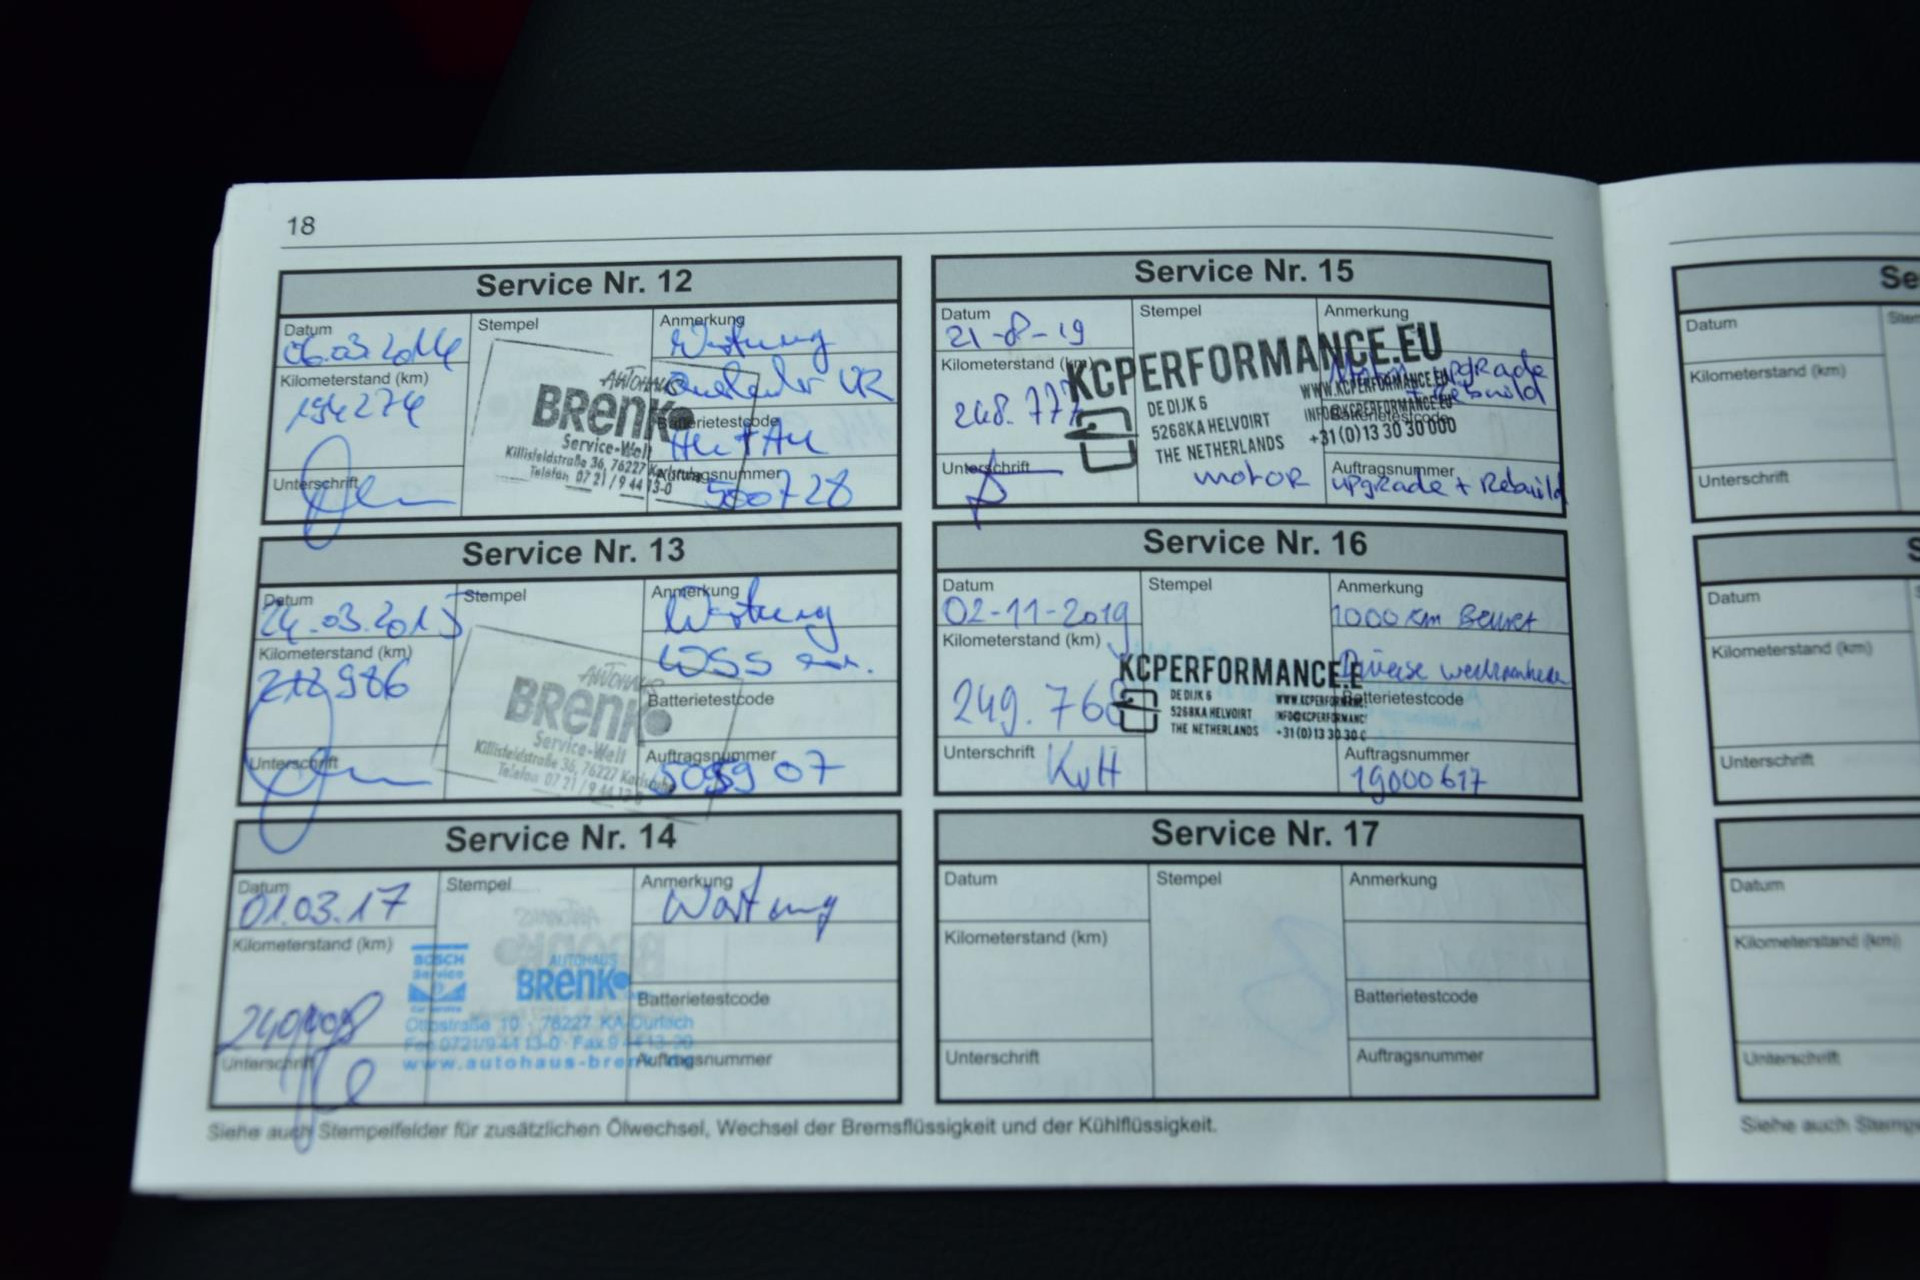 18
Service Nr. 12
Datum
06.03.2014
Stempel
Anmerkung
Wartung
Kilometerstand (km)
194274
AUTOHAUS
BRENK
Service-Welt
Killisfeldstraße 36, 76227 Karlsruhe
Telefon 07 21 / 9 44 13-0
Batterietestcode
HU + AU
Unterschrift
Auftragsnummer
500728
Service Nr. 13
Datum
24.03.2015
Stempel
Anmerkung
Wartung
WSS
Kilometerstand (km)
212986
AUTOHAUS
BRENK
Service-Welt
Killisfeldstraße 36, 76227 Karlsruhe
Telefon 07 21 / 9 44 13-0
Batterietestcode
Unterschrift
Auftragsnummer
Service Nr. 14
Datum
01.03.17
Stempel
Anmerkung
Wartung
Kilometerstand (km)
BOSCH
Service
AUTOHAUS
BRENK
Batterietestcode
Ottostraße 10 · 76227 KA-Durlach
Fon 0721/9 44 13-0 · Fax 9 44 13-20
www.autohaus-brenk
Unterschrift
Auftragsnummer
Service Nr. 15
Datum
21-8-19
Stempel
Anmerkung
Motor upgrade
+ Rebuild
Kilometerstand (km)
248.777
KCPERFORMANCE.EU
DE DIJK 6
5268KA HELVOIRT
THE NETHERLANDS
WWW.KCPERFORMANCE.EU
INFO@KCPERFORMANCE.EU
+31(0)13 30 30 000
Batterietestcode
Unterschrift
Auftragsnummer
motor upgrade + Rebuild
Service Nr. 16
Datum
02-11-2019
Stempel
Anmerkung
1000 km Beurt
Diverse
Kilometerstand (km)
249.768
KCPERFORMANCE.E
DE DIJK 6
5268KA HELVOIRT
THE NETHERLANDS
WWW.KCPERFORM
INFO@KCPERFORMANC
+31(0)13 30 30 0
Batterietestcode
Unterschrift
KvH
Auftragsnummer
19000617
Service Nr. 17
Datum
Stempel
Anmerkung
Kilometerstand (km)
Batterietestcode
Unterschrift
Auftragsnummer
Siehe auch Stempelfelder für zusätzlichen Ölwechsel, Wechsel der Bremsflüssigkeit und der Kühlflüssigkeit.
Se
Datum
Stem
Kilometerstand (km)
Unterschrift
S
Datum
S
Kilometerstand (km)
Unterschrift
Datum
Kilometerstand (km)
Unterschrift
Siehe auch Stempe